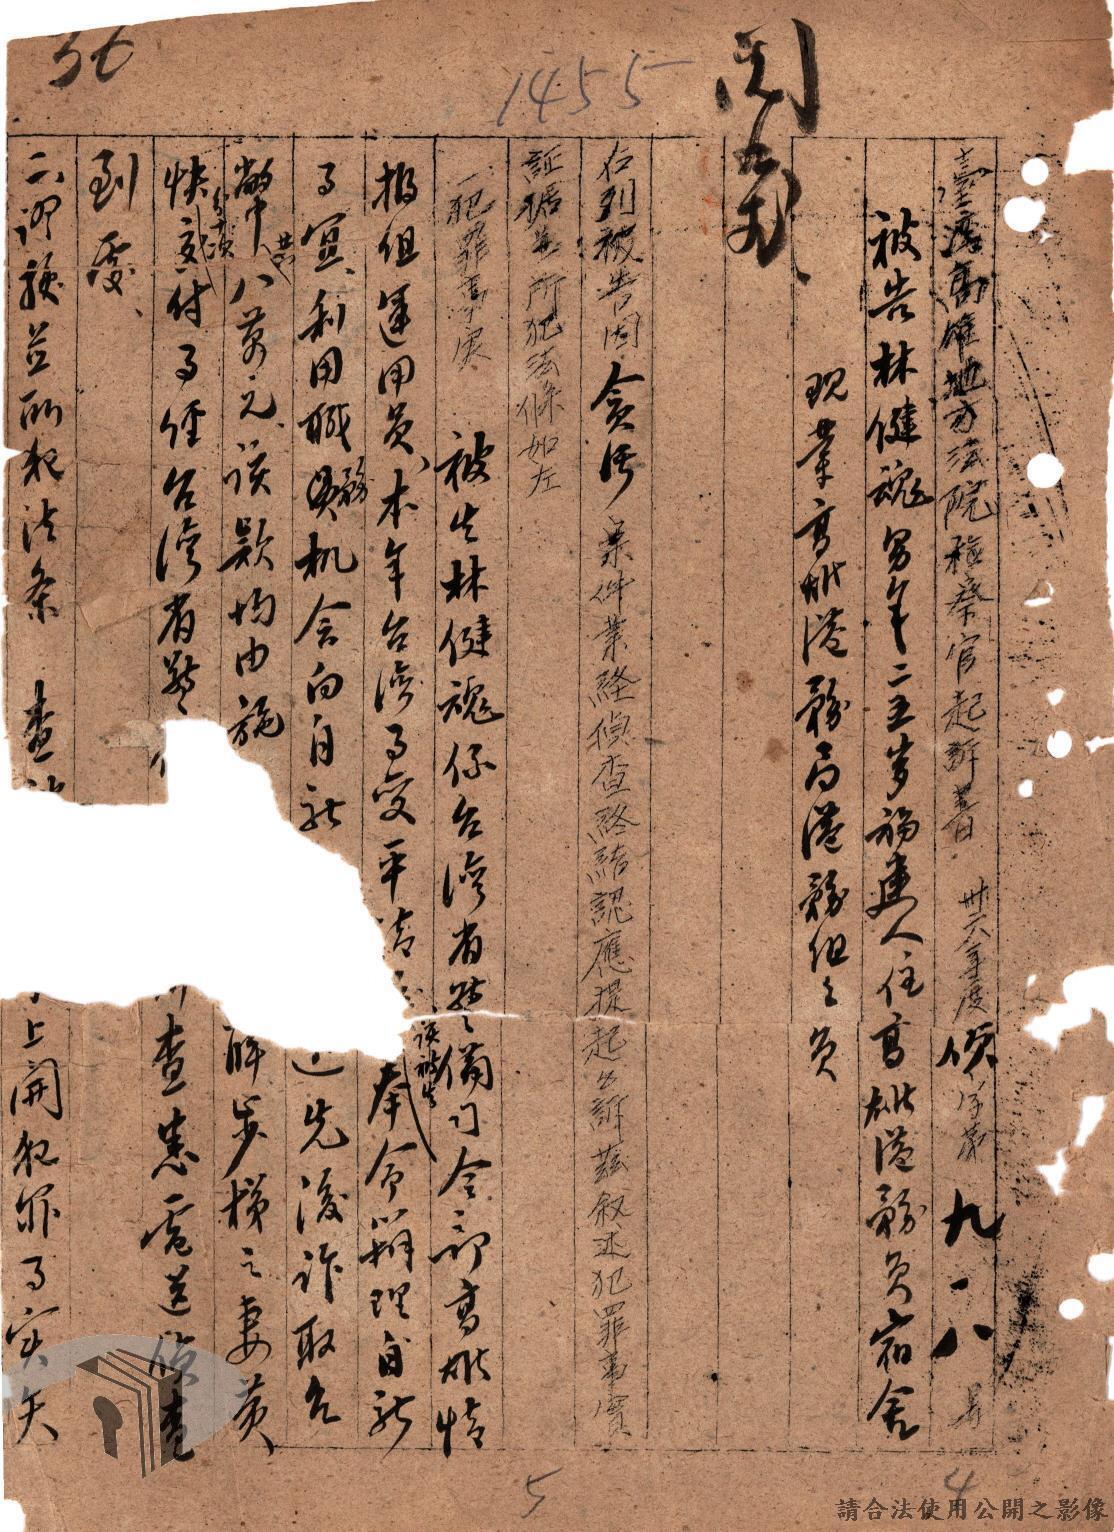 36
1455
臺灣高雄地方法院檢察官起訴書 卅六年度偵字第九一八號
被告林健魂男年二五岁福建人住高雄港務局宿舍
現業高雄港務局港務組組員
右列被告因貪污案件業經偵查終結認應提起公訴茲叙述犯罪事實
証據並所犯法條如左
一犯罪事实 被告林健魂係台灣省警備司令部高雄情
報組運用員、本年台灣事变平
該被告奉令辦理自新
事宜、利用職務机会向自新
先後詐取台
幣八萬元該款均由施
步梯之妻黃
快交付事經台灣省警
查悉電送偵查
到處、
二証據並所犯法条 查
上開犯罪事实矢
5
4
請合法使用公開之影像